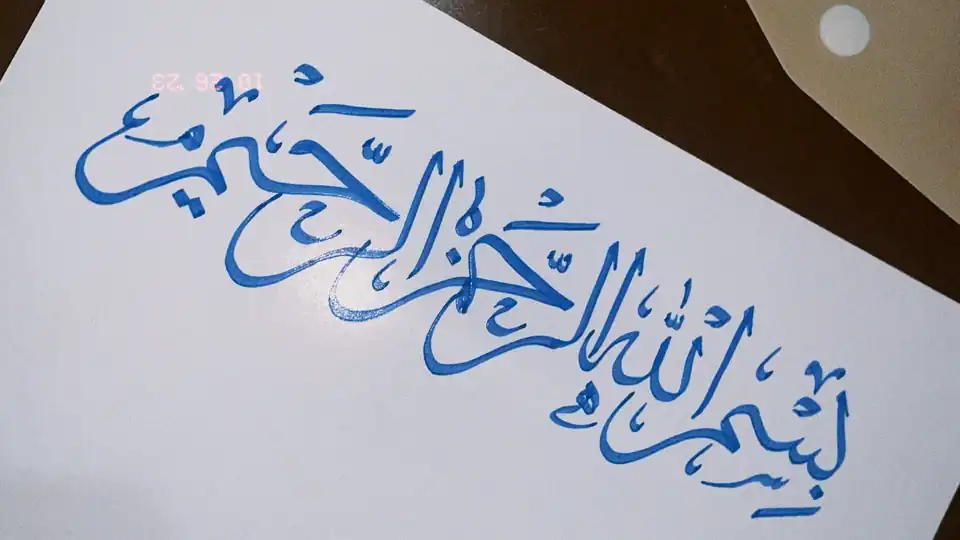 بسم الله الرحمن الرحيم
10 26 '23